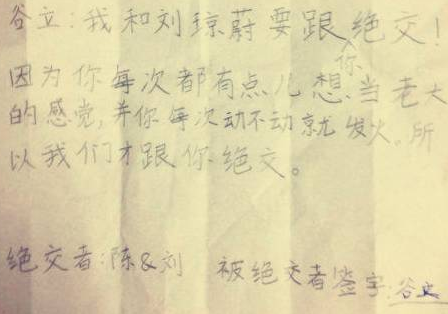 谷立：我和刘琼蔚要跟你绝交！
因为你每次都有点儿想当老大
的感觉，并你每次动不动就发火。所
以我们才跟你绝交。
绝交者：陈&刘 被绝交者签字：谷立